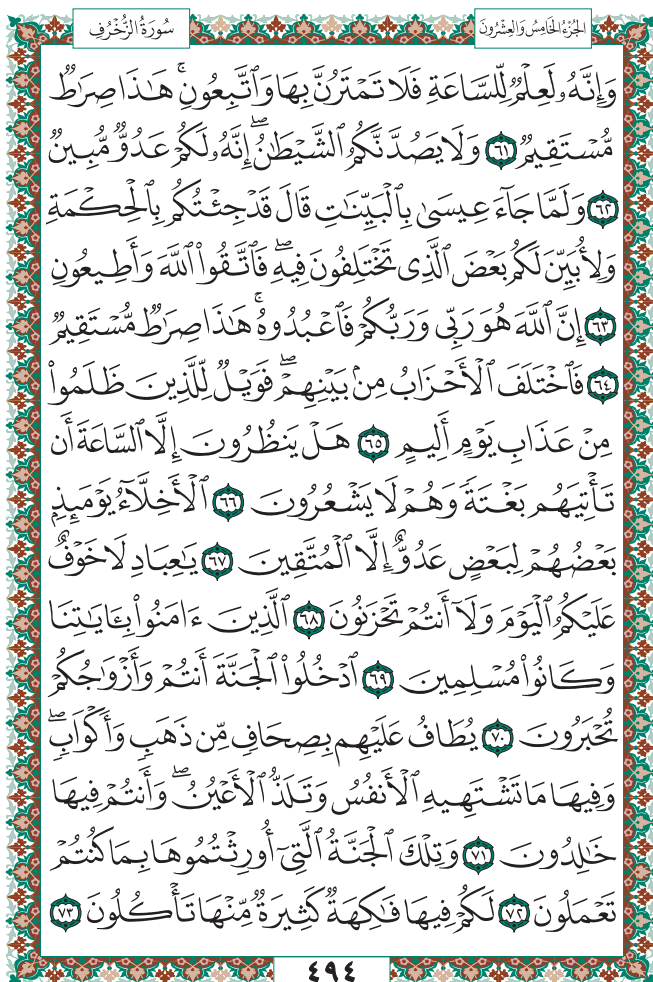 الجُزْءُ الخَامِسُ وَالعِشْرُونَ
سُورَةُ الزُّخْرُفِ
وَإِنَّهُۥ لَعِلْمٌ لِّلسَّاعَةِ فَلَا تَمْتَرُنَّ بِهَا وَٱتَّبِعُونِ ۚ هَٰذَا صِرَٰطٌ
مُّسْتَقِيمٌ ٦١ وَلَا يَصُدَّنَّكُمُ ٱلشَّيْطَٰنُ ۖ إِنَّهُۥ لَكُمْ عَدُوٌّ مُّبِينٌ
٦٢ وَلَمَّا جَآءَ عِيسَىٰ بِٱلْبَيِّنَٰتِ قَالَ قَدْ جِئْتُكُم بِٱلْحِكْمَةِ
وَلِأُبَيِّنَ لَكُم بَعْضَ ٱلَّذِى تَخْتَلِفُونَ فِيهِ ۖ فَٱتَّقُوا۟ ٱللَّهَ وَأَطِيعُونِ
٦٣ إِنَّ ٱللَّهَ هُوَ رَبِّى وَرَبُّكُمْ فَٱعْبُدُوهُ ۚ هَٰذَا صِرَٰطٌ مُّسْتَقِيمٌ
٦٤ فَٱخْتَلَفَ ٱلْأَحْزَابُ مِنۢ بَيْنِهِمْ ۖ فَوَيْلٌ لِّلَّذِينَ ظَلَمُوا۟
مِنْ عَذَابِ يَوْمٍ أَلِيمٍ ٦٥ هَلْ يَنظُرُونَ إِلَّا ٱلسَّاعَةَ أَن
تَأْتِيَهُم بَغْتَةً وَهُمْ لَا يَشْعُرُونَ ٦٦ ٱلْأَخِلَّآءُ يَوْمَئِذٍۭ
بَعْضُهُمْ لِبَعْضٍ عَدُوٌّ إِلَّا ٱلْمُتَّقِينَ ٦٧ يَٰعِبَادِ لَا خَوْفٌ
عَلَيْكُمُ ٱلْيَوْمَ وَلَآ أَنتُمْ تَحْزَنُونَ ٦٨ ٱلَّذِينَ ءَامَنُوا۟ بِـَٔايَٰتِنَا
وَكَانُوا۟ مُسْلِمِينَ ٦٩ ٱدْخُلُوا۟ ٱلْجَنَّةَ أَنتُمْ وَأَزْوَٰجُكُمْ
تُحْبَرُونَ ٧٠ يُطَافُ عَلَيْهِم بِصِحَافٍ مِّن ذَهَبٍ وَأَكْوَابٍ ۖ
وَفِيهَا مَا تَشْتَهِيهِ ٱلْأَنفُسُ وَتَلَذُّ ٱلْأَعْيُنُ ۖ وَأَنتُمْ فِيهَا
خَٰلِدُونَ ٧١ وَتِلْكَ ٱلْجَنَّةُ ٱلَّتِىٓ أُورِثْتُمُوهَا بِمَا كُنتُمْ
تَعْمَلُونَ ٧٢ لَكُمْ فِيهَا فَٰكِهَةٌ كَثِيرَةٌ مِّنْهَا تَأْكُلُونَ ٧٣
٤٩٤